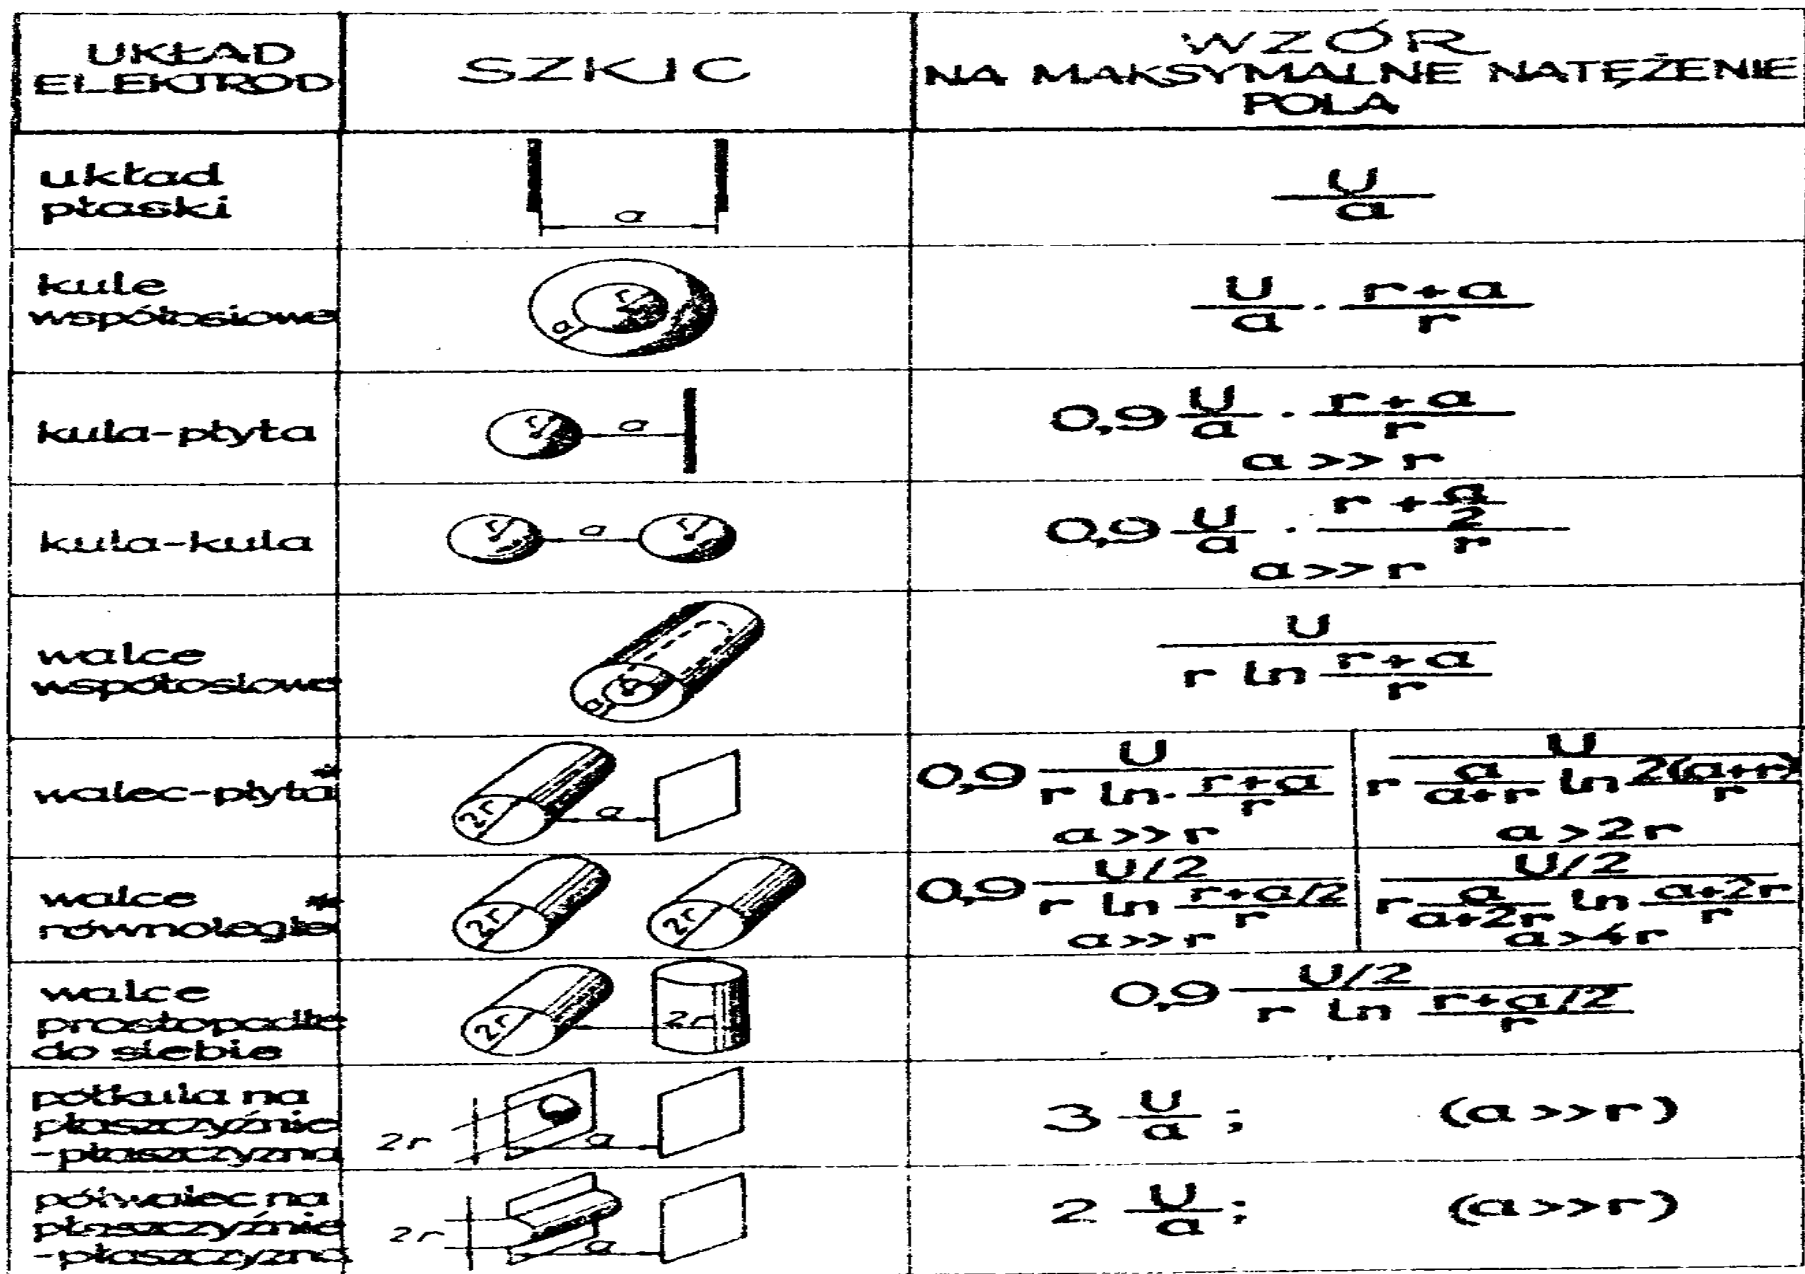 UKŁAD ELEKTROD
SZKIC
WZÓR
NA MAKSYMALNE NATĘŻENIE
POLA
układ
płaski
a
U/a
kule
współosiowe
r
a
U/a · (r+a)/r
kula-płyta
r
a
0,9 U/a · (r+a)/r
a >> r
kula-kula
r
a
r
0,9 U/a · (r+a/2)/r
a >> r
walce
współosiowe
r
a
U/(r ln (r+a)/r)
walec-płyta*
2r
a
0,9 U/(r ln· (r+a)/r)
a >> r
U/(r a/(a+r) ln 2(a+r)/r)
a > 2r
walce
równoległe*
2r
2r
0,9 (U/2)/(r ln (r+a/2)/r)
a >> r
(U/2)/(r a/(a+2r) ln (a+2r)/r)
a > 4r
walce
prostopadłe
do siebie
2r
2r
0,9 (U/2)/(r ln (r+a/2)/r)
półkula na
płaszczyźnie
-płaszczyzna
2r
a
3 U/a ; (a >> r)
półwalec na
płaszczyźnie
-płaszczyzna
2r
a
2 U/a ; (a >> r)